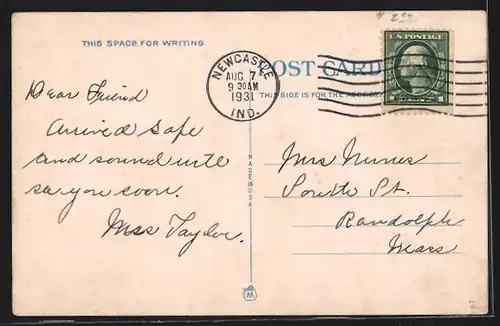 $ 2.00
THIS SPACE FOR WRITING
Dear Friend
Arrived safe
and sound will
see you soon.
Miss Taylor.
NEWCASTLE
AUG 7
9 30 AM
1931
IND.
POST CARD
THIS SIDE IS FOR THE ADDRESS
U.S. POSTAGE
MADE IN USA
Mrs Nunes
South St.
Randolph
Mass
M